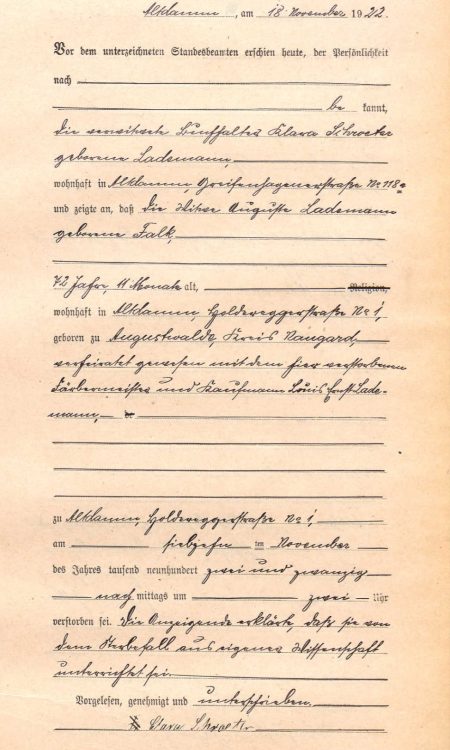 Altdamm, am 18. November 1922.
Vor dem unterzeichneten Standesbeamten erschien heute, der Persönlichkeit
nach
be kannt,
die verwitwete Buchhalter Klara Schroeter
geborene Lademann,
wohnhaft in Altdamm, Greifenhagenerstraße No 118a
und zeigte an, daß die Witwe Auguste Lademann
geborene Falk,
72 Jahre, 11 Monate alt, Religion,
wohnhaft in Altdamm, Holdereggerstraße No 1,
geboren zu Augustwalde, Kreis Naugard,
verheiratet gewesen mit dem hier verstorbenen
Färbermeister und Kaufmann Louis Ernst Lade-
mann,
zu Altdamm, Holdereggerstraße No 1,
am siebzehn ten November
des Jahres tausend neunhundert zwei und zwanzig
nach mittags um zwei Uhr
verstorben sei. Die Anzeigende erklärte, daß sie von
dem Sterbefall aus eigener Wissenschaft
unterrichtet sei.
Vorgelesen, genehmigt und unterschrieben.
Clara Schroeter